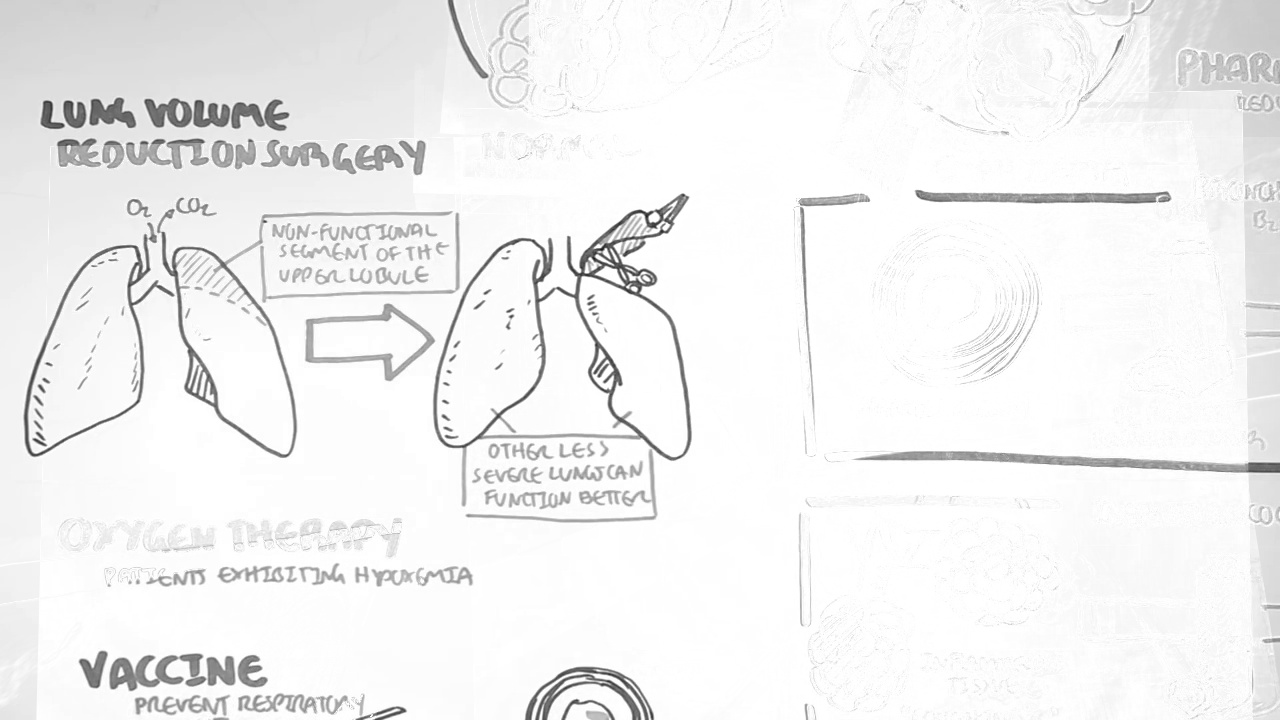 LUNG VOLUME
REDUCTION SURGERY
O2 CO2
NON-FUNCTIONAL
SEGMENT OF THE
UPPER LOBULE
OTHER LESS
SEVERE LUNGS CAN
FUNCTION BETTER
OXYGEN THERAPY
PATIENTS EXHIBITING HYPOXEMIA
VACCINE
PREVENT RESPIRATORY
NORMAL
TISSUE